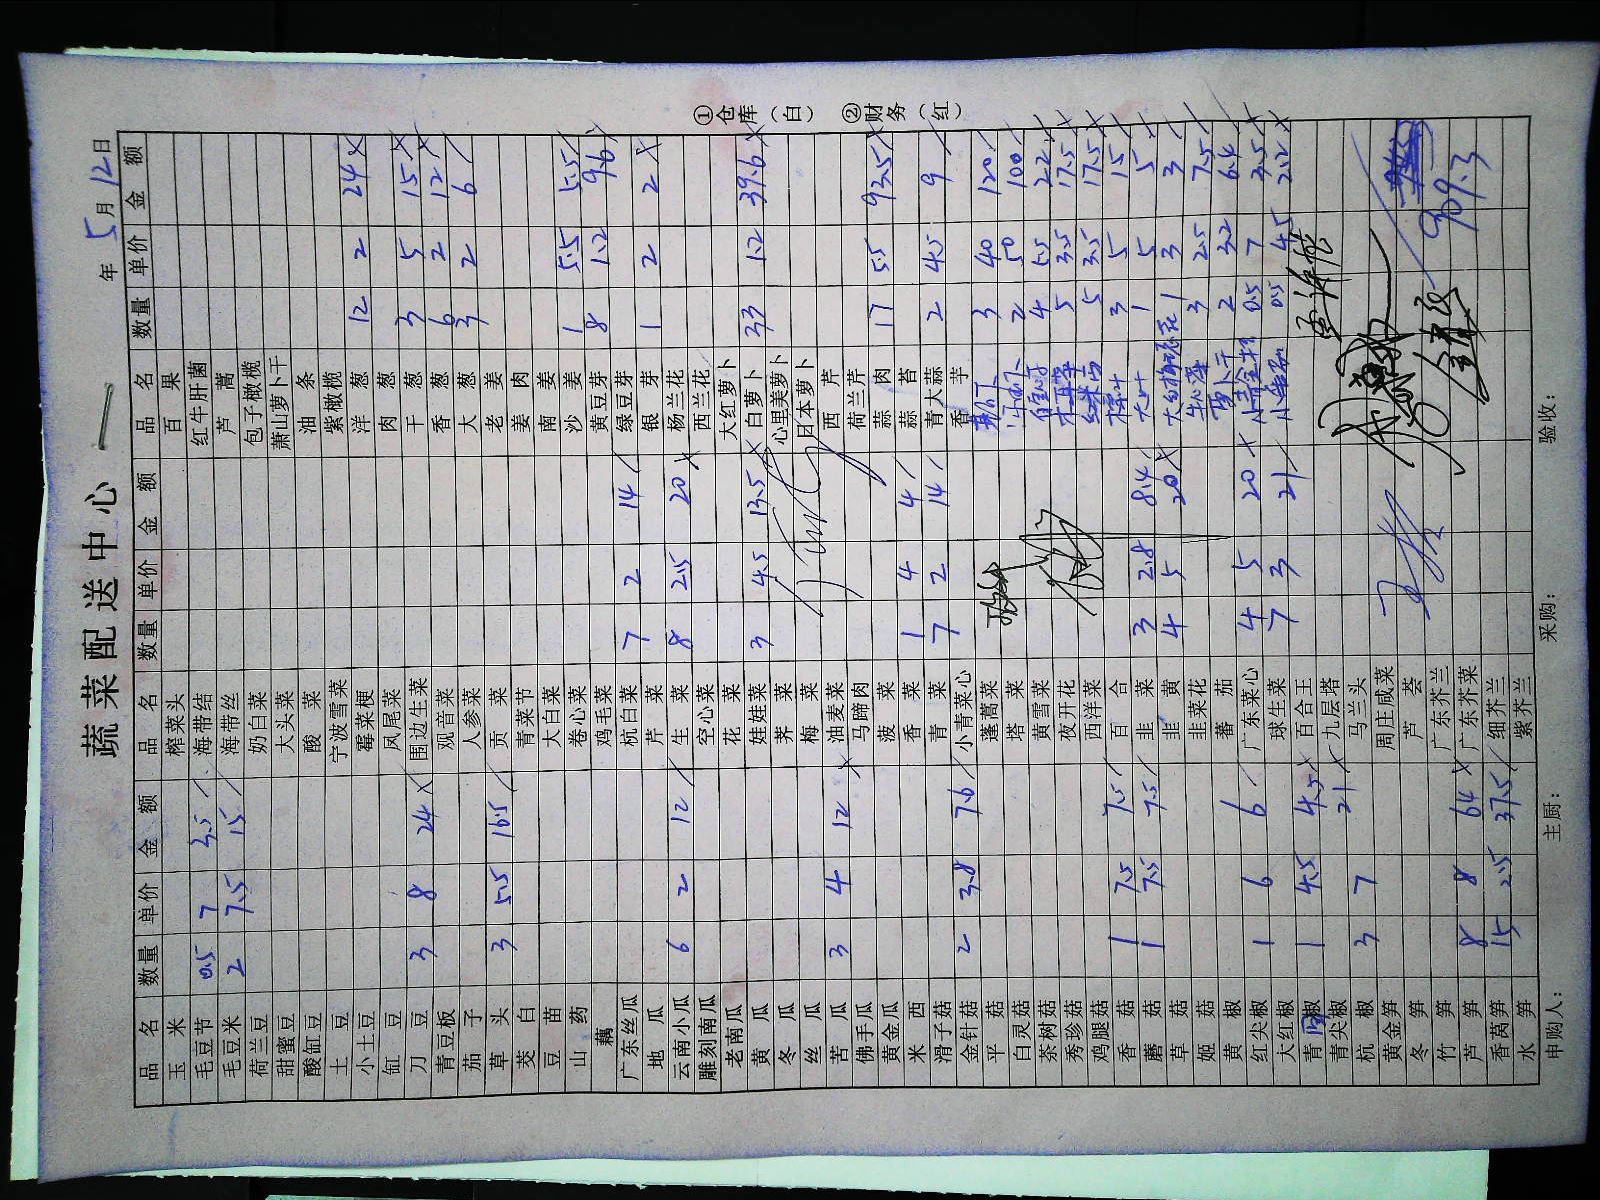 蔬菜配送中心 一
年 5月 12日
品名 数量 单价 金额 品名 数量 单价 金额 品名 数量 单价 金额
玉米 榨菜头 百果
毛豆节 0.5 7 3.5 海带结 红牛肝菌
毛豆米 2 7.5 15 海带丝 芦蒿
荷兰豆 奶白菜 包子橄榄
甜蜜豆 大头菜 萧山萝卜干
酸缸豆 酸菜 油条
土豆 宁波雪菜 紫橄榄
小土豆 霉菜梗 洋葱 12 2 24
缸豆 凤尾菜 肉葱
刀豆 3 8 24 围边生菜 干葱 3 5 15
青豆板 观音菜 香葱 6 2 12
茄子 人参菜 大葱 3 2 6
草头 3 5.5 16.5 贡菜 老姜
茭白 青菜节 姜肉
豆苗 大白菜 南姜
山药 卷心菜 沙姜 1 5.5 5.5
藕 鸡毛菜 黄豆芽 8 1.2 9.6
广东丝瓜 杭白菜 7 2 14 绿豆芽
地瓜 芹菜 银芽 1 2 2
云南小瓜 6 2 12 生菜 8 2.5 20 杨兰花
雕刻南瓜 空心菜 西兰花
老南瓜 花菜 大红萝卜
黄瓜 娃娃菜 3 4.5 13.5 白萝卜 33 1.2 39.6
冬瓜 荠菜 心里美萝卜
丝瓜 梅菜 日本萝卜
苦瓜 3 4 12 油麦菜 西芹
佛手瓜 马蹄肉 荷兰芹
黄金瓜 菠菜 蒜肉 17 5.5 93.5
米西 香菜 1 4 4 蒜苔
滑子菇 青菜 7 2 14 青大蒜 2 4.5 9
金针菇 2 3.8 7.6 小青菜心 香芋
平菇 蓬蒿菜 3 40 120
白灵菇 塔菜 2 50 100
茶树菇 黄雪菜 4 5.5 22
秀珍菇 夜开花 5 3.5 17.5
鸡腿菇 西洋菜 5 3.5 17.5
香菇 1 7.5 7.5 百合 3 5 15
蘑菇 1 7.5 7.5 韭菜 3 2.8 8.4 大叶 1 5 5
草菇 韭黄 4 5 20 1 3 3
姬菇 韭菜花 3 2.5 7.5
黄椒 蕃茄 萝卜干 2 3.2 6.4
红尖椒 1 6 6 广东菜心 4 5 20 0.5 7 3.5
大红椒 球生菜 7 3 21 0.5 4.5
青圆椒 1 4.5 4.5 百合王
青尖椒 九层塔
杭椒 3 7 21 马兰头
黄金笋 周庄咸菜
冬笋 芦荟
竹笋 广东芥兰 909.3
芦笋 8 8 64 广东芥菜
香莴笋 15 2.5 37.5 细芥兰
水笋 紫芥兰
申购人： 主厨： 采购： 验收：
①仓库（白） ②财务（红）